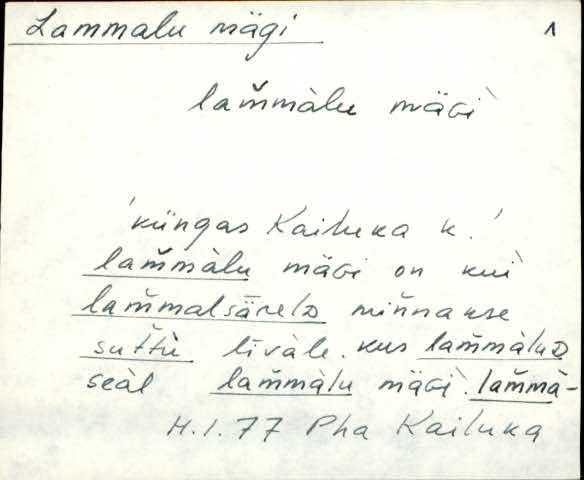 Lammalu mägi 1
lam̆màlu mäɢi`
'küngas Kailuka k.'
lam̆màlu mäɢi on kui`
lam̆malsārelᴅ miňnakse
sut̆tù līvàle. kus lam̆màluᴅ
seàl lam̆màlu mäɢi`. lam̆mà-
H.I.77 Pha Kailuka